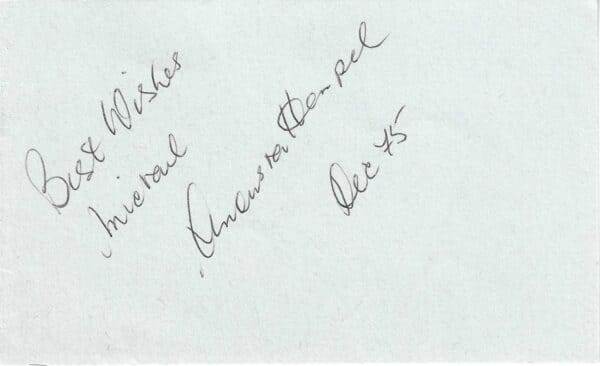 Best Wishes
Michael
Anouska Hempel
Dec 75